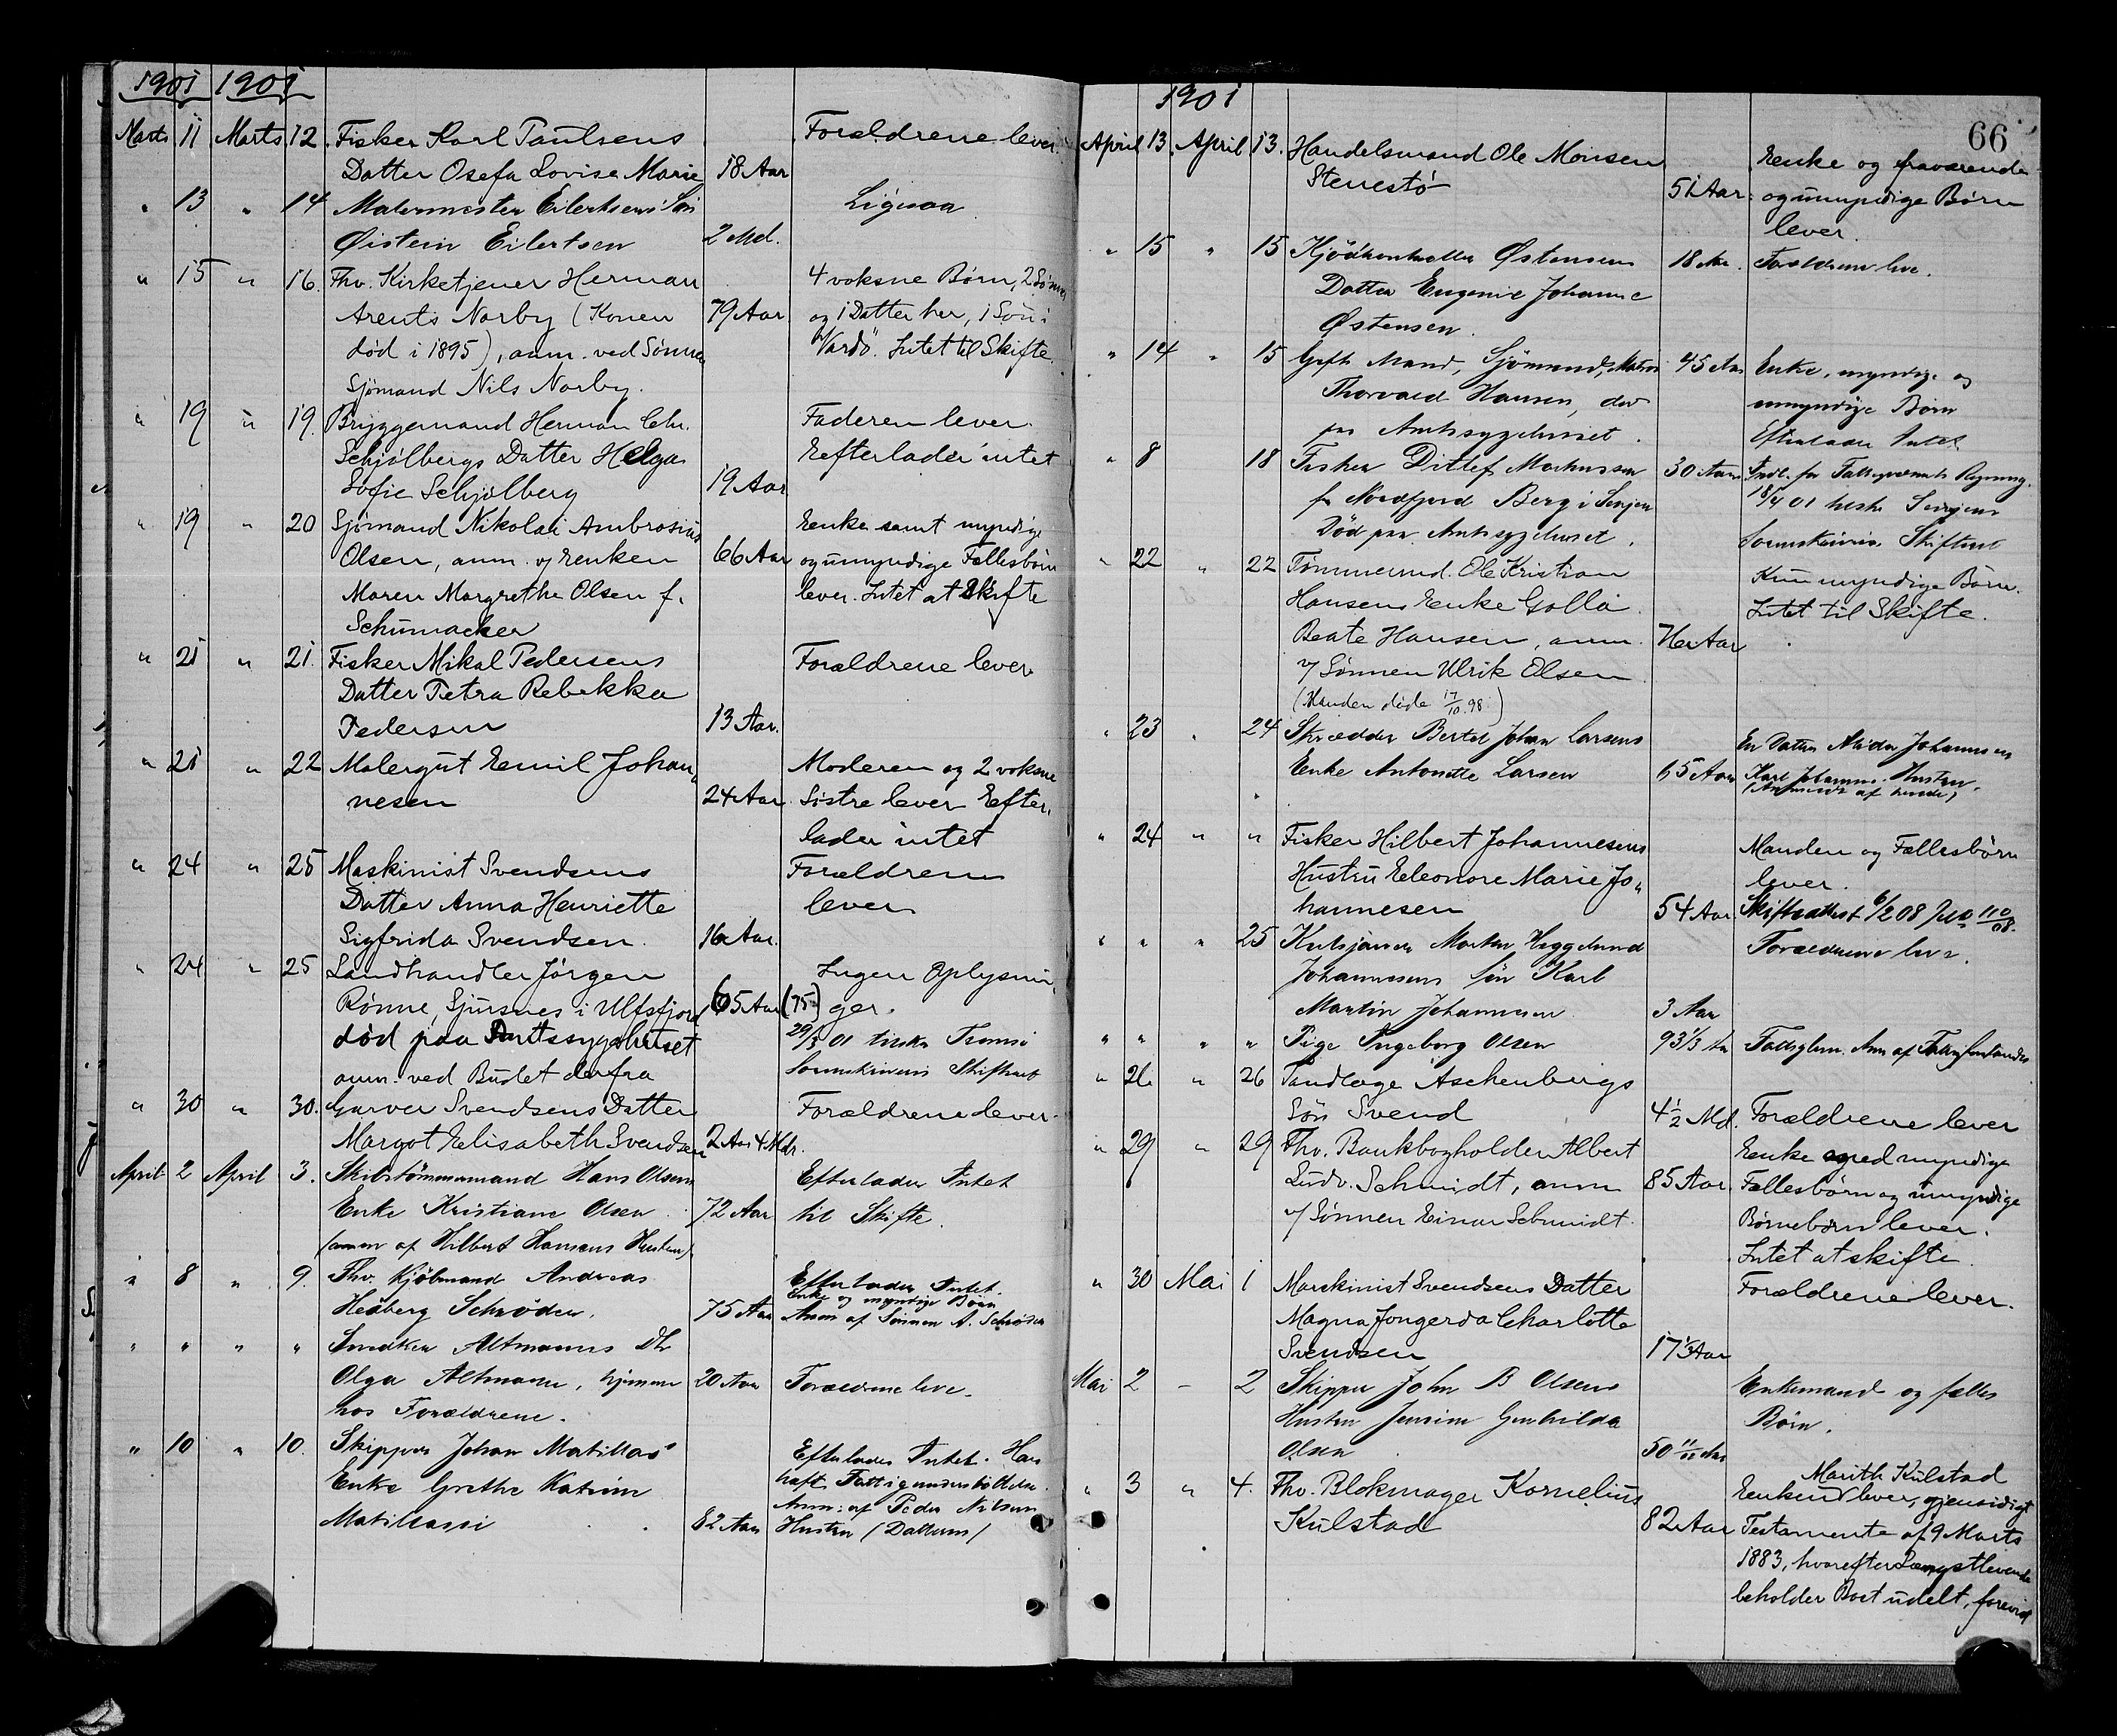 1901 1901
Marts 11 Marts 12. Fisker Karl Paulsens Forældrene lever.
Datter Osefa Lovise Marie 18 Aar
" 13 " 14 Malermester Eilertsens Søn Ligesaa
Øistein Eilertsen 2 Md.
" 15 " 16. Fhv. Kirketjener Herman 4 voksne Børn, 2 Sønner
Arents Norby (Konen 79 Aar og 1 Datter her, 1 Søn i
død i 1895), anm. ved Sønnen Vardö. Intet til Skifte.
Sjømand Nils Norby.
" 19 " 19. Bryggemand Herman Chr. Faderen lever.
Schjølbergs Datter Helga Efterlader intet
Sofie Schjølberg 19 Aar
" 19 " 20 Sjømand Nikolai Ambrosius Enke samt myndige
Olsen, anm. v/ Enken 66 Aar og umyndige Fællesbørn
Maren Margrethe Olsen f. lever. Intet at Skifte
Schumacker
" 21 " 21. Fisker Mikal Pedersens Forældrene lever
Datter Petra Rebekka
Pedersen 13 Aar.
" 21 " 22 Malergut Emil Johan- Moderen og 2 voksne
nesen 24 Aar. Søstre lever Efter-
lader intet
" 24 " 25 Maskinist Svendsens Forældrene
Datter Anna Henriette lever
Sigfrida Svendsen 16 Aar.
" 24 " 25 Landhandler Jörgen Ingen Oplysnin-
Rönne, Sjursnes i Ulfsfjord 65 Aar (75) ger.
død paa Amtssygehuset 29/3 01 tilskr. Tromsø
anm. ved Budet derfra Sorenskriveri Skifteret
" 30 " 30. Garver Svendsens Datter Forældrene lever.
Margot Elisabeth Svendsen 2 Aar 4 Mdr.
April 2 April 3. Skibstømmermand Hans Olsens Efterlader Intet
Enke Kristiane Olsen 72 Aar til Skifte.
(anm af Hilbert Hansens Hustru).
" 8 " 9. Fhv. Kjöbmand Andreas Efterlader Intet.
Enke og myndige Børn
Hedberg Schrøder. 75 Aar Anm af Sønnen A. Schrøder
" " " " Snedker Altmanns Dtr
Olga Altmann, hjemme 20 Aar Forældrene leve.
hos Forældrene.
" 10 " 10. Skipper Johan Matillas' Efterlader Intet. Har
Enke Grethe Katrine havt Fattigunderstøttelse.
Anm: af Peder Nilsens
Matillassi 82 Aar Hustru (Datteren)
1901
66
April 13. April 13. Handelsmand Ole Monsen Enke og fraværende
Stenestø 51 Aar. og umyndige Børn
lever.
" 15 " 15 Kjödkontrollør Østensens 18 Aar. Forældrene leve.
Datter Eugenie Johanne
Østensen.
" 14 " 15 Gift Mand, Sjömand, Matros 45 Aar Enke, myndige og
Thorvald Hansen, død umyndige Børn
paa Amtssygehuset. Efterlader Intet
" 8 18 Fisker Ditlef Markussen 30 Aar Indl. for Fattigvæsenets Regning.
fr Nordfjord Berg i Senjen 18/4 01 tilskr Senjens
Død paa Amtssygehuset. Sorenskriveri Skifteret
" 22 " 22 Tømmermd. Ole Kristian Kun myndige Børn.
Hansens Enke Golla Intet til Skifte.
Beate Hansen, anm. 76 Aar
v/ Sønnen Ulrik Olsen
(Manden døde 17/10. 98.)
" 23 " 24 Skrædder Bertel Johan Larsens En Datter Alida Johannesen
Enke Antonette Larsen 65 Aar Karl Johannes. Hustru.
(Anmeldt af hende)
" 24 " " Fisker Hilbert Johannesens Manden og Fællesbørn
Hustru Eleonore Marie Jo- lever.
hannesen 54 Aar. Skifteattest 6/2 08 110/08.
" " " 25 Morten Heggelund Forældrene leve.
Johannesens Søn Karl
Martin Johannesen 3 Aar
" " " " Pige Ingeborg Olsen 93 1/3 Aar Fattiglem. Anm af Fattigforstander
" 26 " 26 Tandlæge Aschenbergs
Søn Svend 4 1/2 Md. Forældrene lever
" 29 " 29 Fhv. Bankbogholder Albert Enke med myndige
Ludv. Schmidt, anm 85 Aar. Fællesbørn og umyndige
v/ Sønnen Einar Schmidt. Børnebørn lever.
Intet at skifte.
" 30 Mai 1 Marskinist Svendsens Datter Forældrene lever.
Magna Jongerda Charlotte
Svendsen 17 1/3 Aar
Mai 2 – 2 Skipper John B Olsens Enkemand og fælles
Hustru Jensine Gunhilda Børn.
Olsen 50 11/12 Aar
" 3 " 4. Fhv. Blokmager Kornelius Marith Kulstad
Enken lever, gjensidigt
Kulstad 82 Aar Testamente af 9 Marts
1883, hvorefter Længstlevende
beholder Boet udelt, forevist